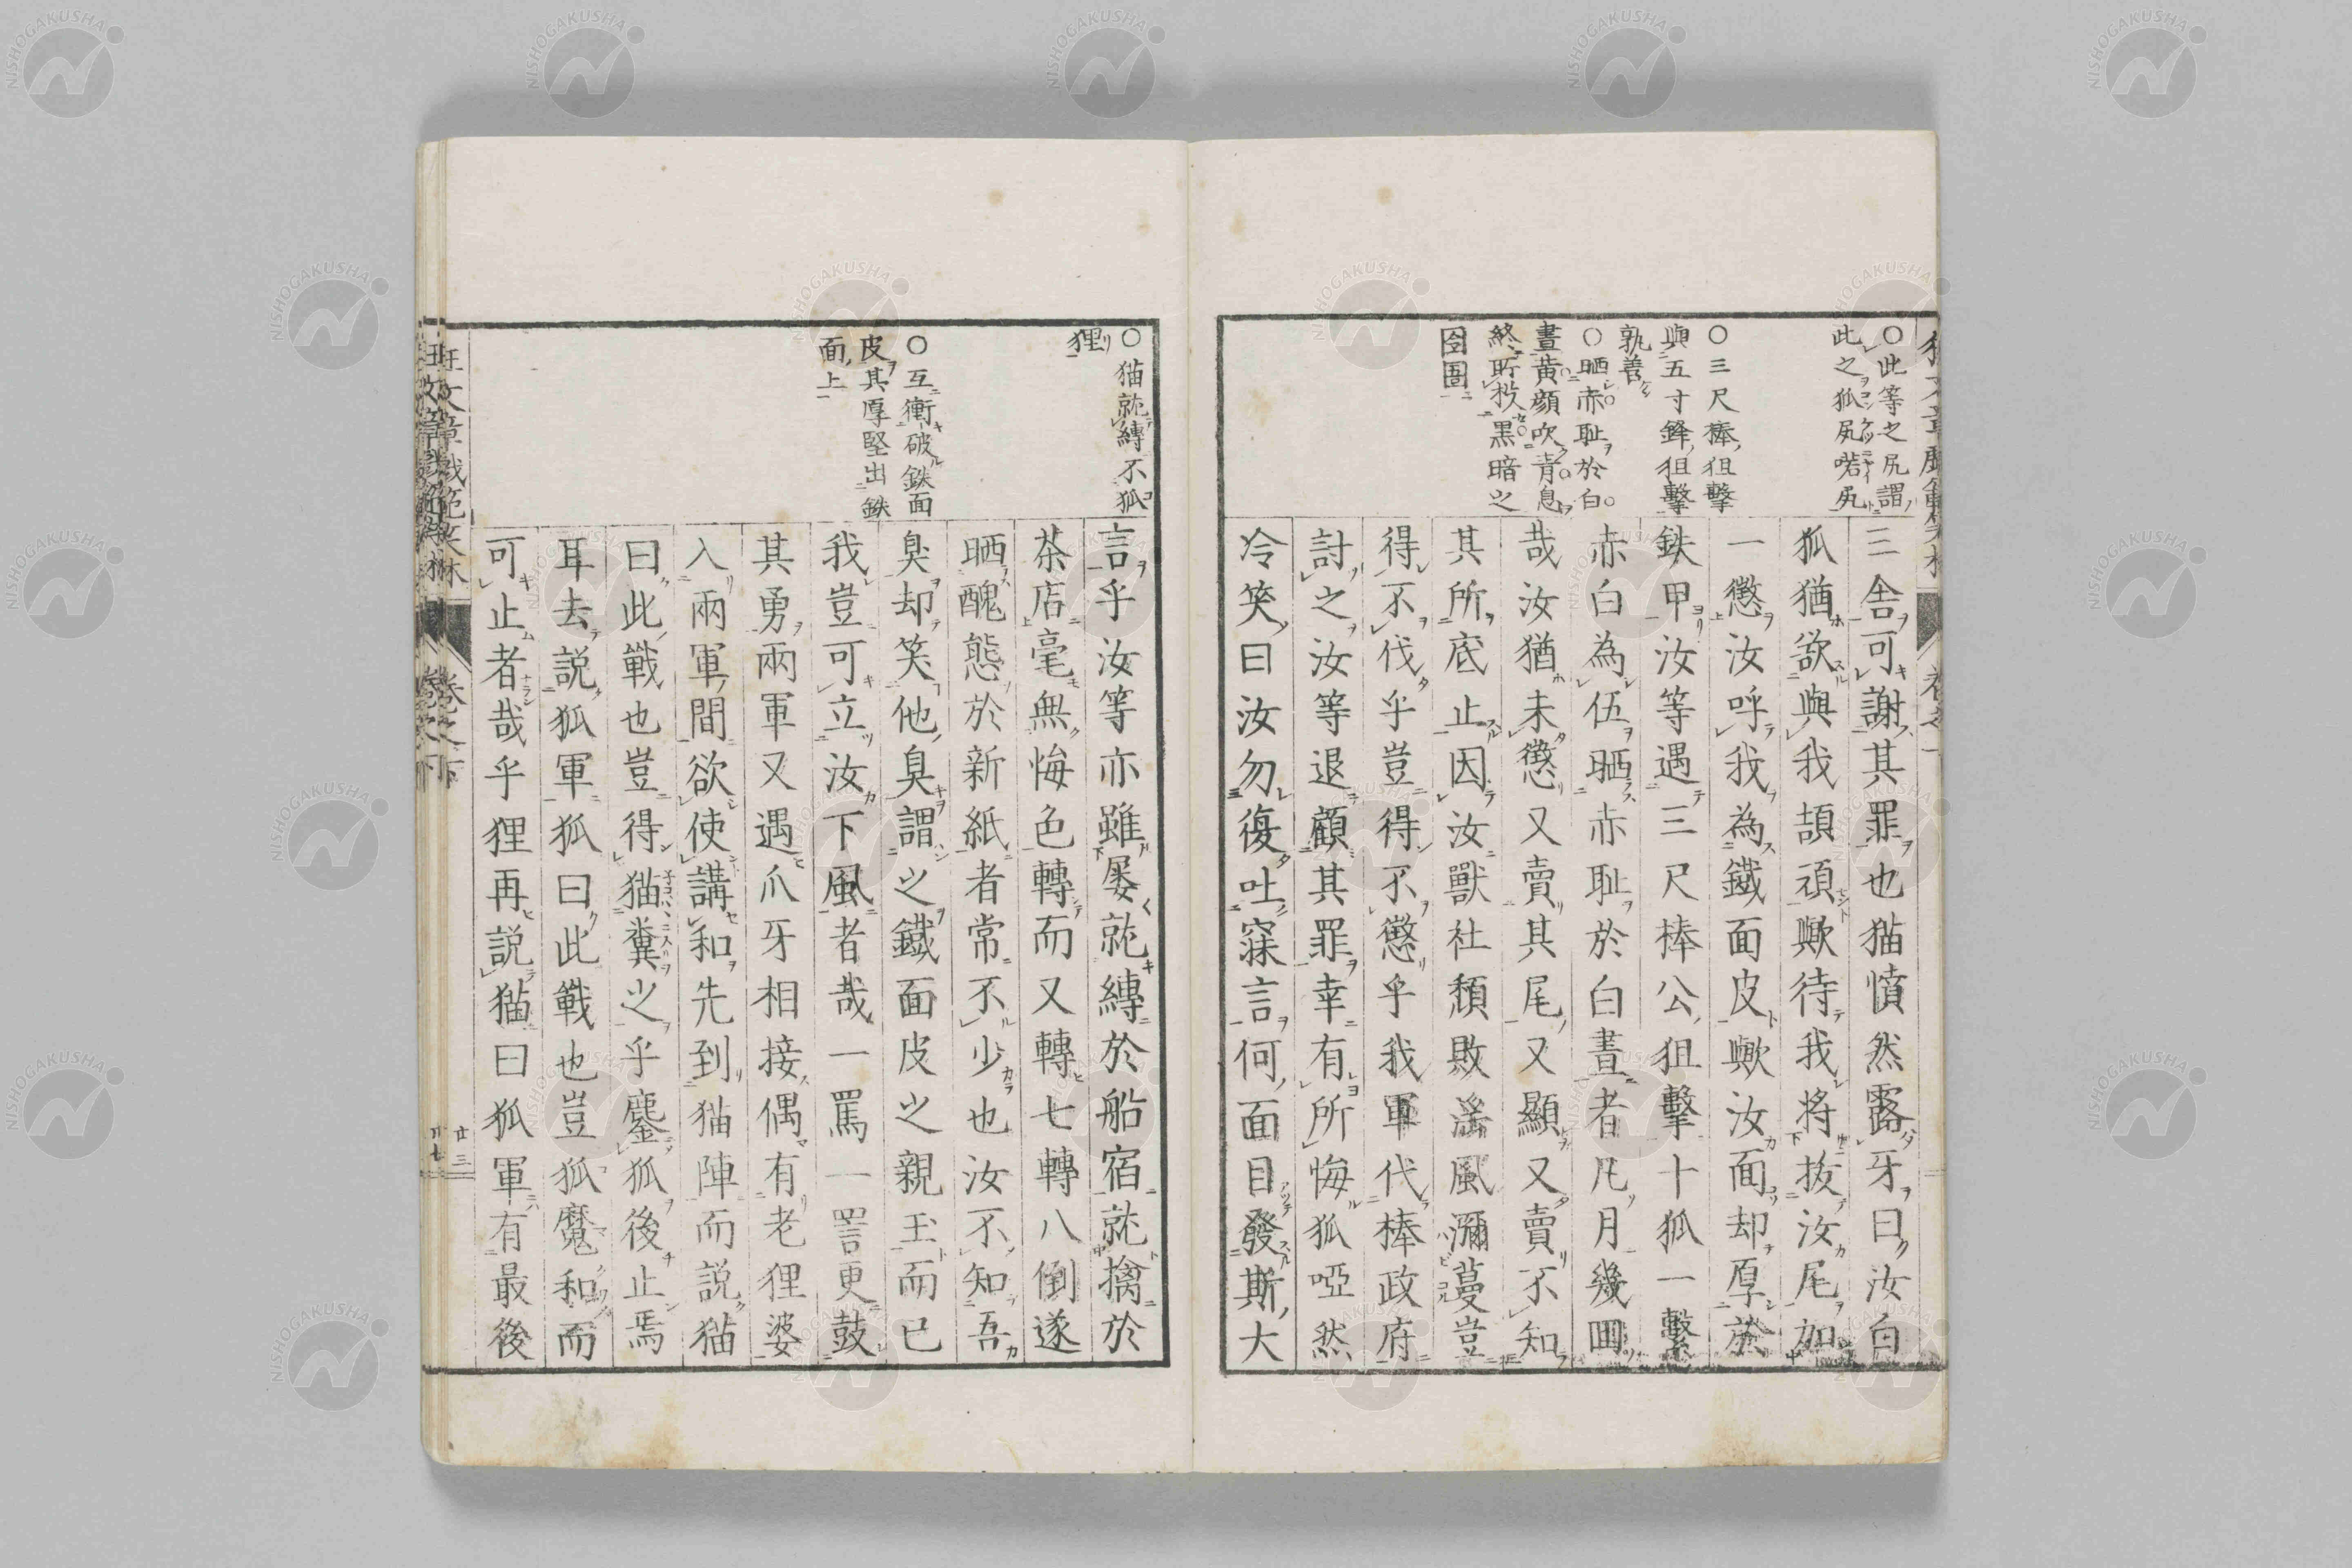 〇此等之尻謂
此之狐尻喏尻
〇三尺棒狙擊
與五寸鋒狙擊
孰善
〇晒赤恥於白
晝黃顔吹青息
終所投黒暗之
囹圄
三舎可謝其罪也猫憤然露牙曰汝白
狐猶欲與我頡頑歟待我將拔汝尾加
一懲汝呼我為鐵面皮歟汝面却厚於
鉄甲汝等遇三尺棒公狙擊十狐一繫
赤白為伍晒赤耻於白晝者凡月幾回
哉汝猶未懲又賣其尾又顯又賣不知
其所底止因汝獸社頽敗滛風瀰蔓豈
得不伐乎豈得不懲乎我軍代棒政府
討之汝等退顧其罪幸有所悔狐啞然
冷笑曰汝勿復吐寐言何面目發斯大
〇猫就縛不狐
狸
〇互衝破鉄面
皮其厚堅出鉄
面上
言乎汝等亦雖屡就縛於船宿就擒於
茶店毫無悔色轉而又轉七轉八倒遂
晒醜態於新紙者常不少也汝不知吾
臭却笑他臭謂之鐵面皮之親玉而已
我豈可立汝下風者哉一罵一詈更鼓
其勇兩軍又遇爪牙相接偶有老狸婆
入兩軍間欲使講和先到猫陣而説猫
曰此戰也豈得猫糞之乎鏖狐後止焉
耳去説狐軍狐曰此戰也豈狐魔和而
可止者哉乎狸再説猫曰狐軍有最後
卷之下
廿三